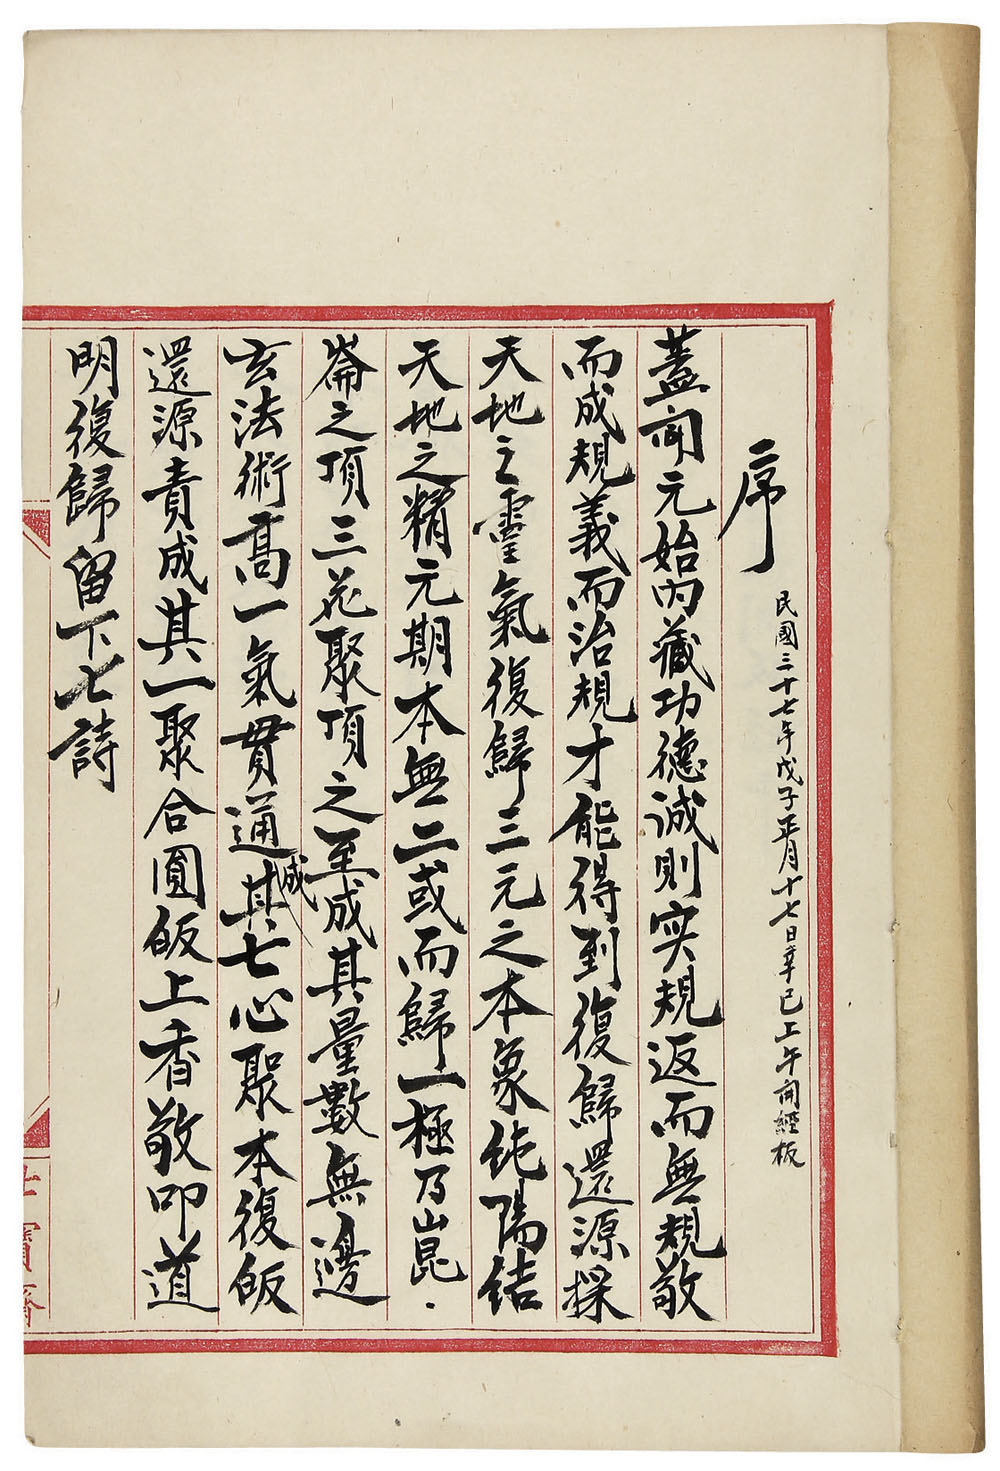 序
民國三十七年戊子正月十七日辛巳上午開經板
蓋聞元始內藏功德誠則实規返而無規敬
而成規義而治規才能得到復歸還源採
天地之靈氣復歸三元之本象純陽結
天地之精元期本無二或而歸一極乃崑
崙之頂三花聚頂之至成其量數無邊
玄法術高一氣貫通其成七心聚本復皈
還源責成其一聚合圓皈上香敬叩道
明復歸留下七詩
寶齋